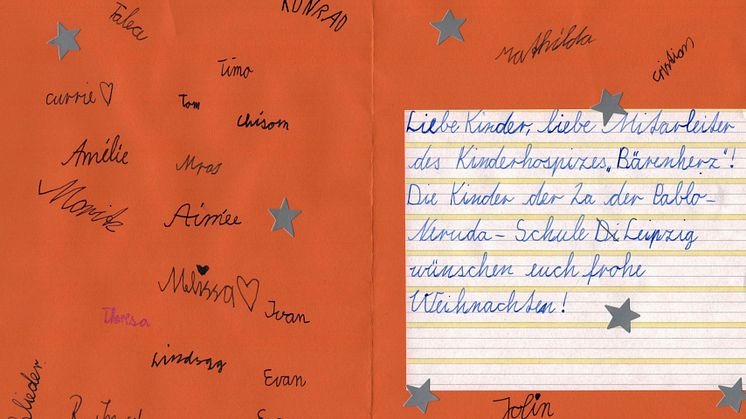 Talea
KONRAD
Timo
currie
Tom
Chisom
Amélie
Moritz
Aimée
Melissa
Ivan
Theresa
Evan
Mathilda
cristian
Liebe Kinder, liebe Mitarleiter
des Kinderhospizes „Bärenherz"!
Die Kinder der 2a der Pablo-
Neruda-Schule Di Leipzig
wünschen euch frohe
Weihnachten!
Jolin